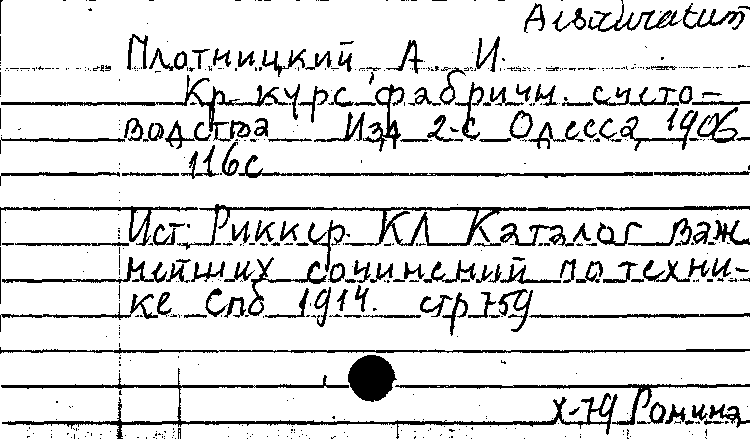 Плотницкий А. И.
Кр. курс фабричн. счето-
водства Изд 2-е Одесса, 1906
116с
Ист: Риккер. КЛ Каталог важ
нейших сочинений по техни-
ке Спб 1914. стр 759
X-79 Ромина